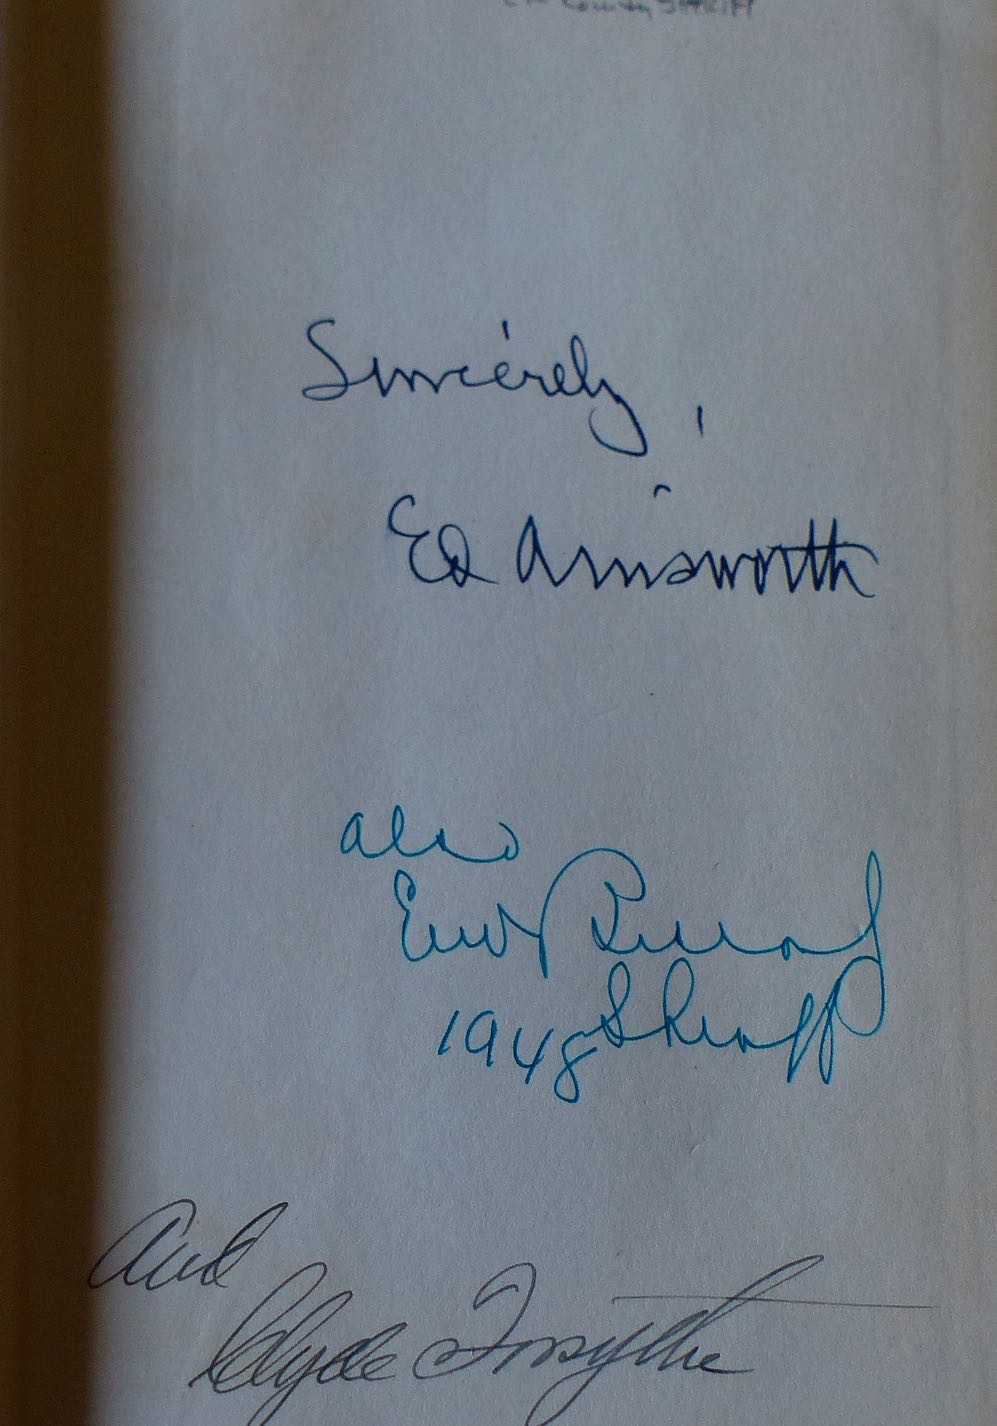 County SHERIFF
Sincerely,
Ed Ainsworth
also
1948 Sheriff
And
Clyde Forsythe